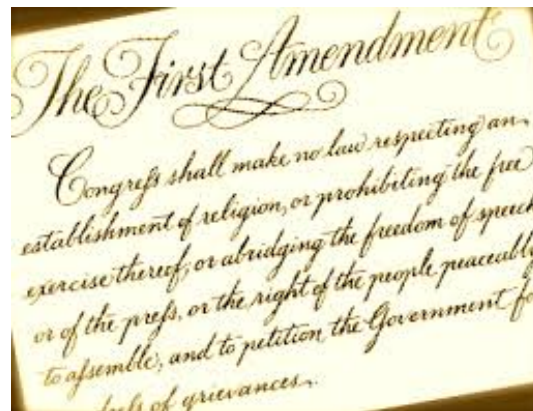 The First Amendment
Congreſs shall make no law respecting an
establishment of religion, or prohibiting the free
exercise thereof; or abridging the freedom of speech
or of the preſs, or the right of the people peaceably
to aſsemble, and to petition the Government
of grievances.